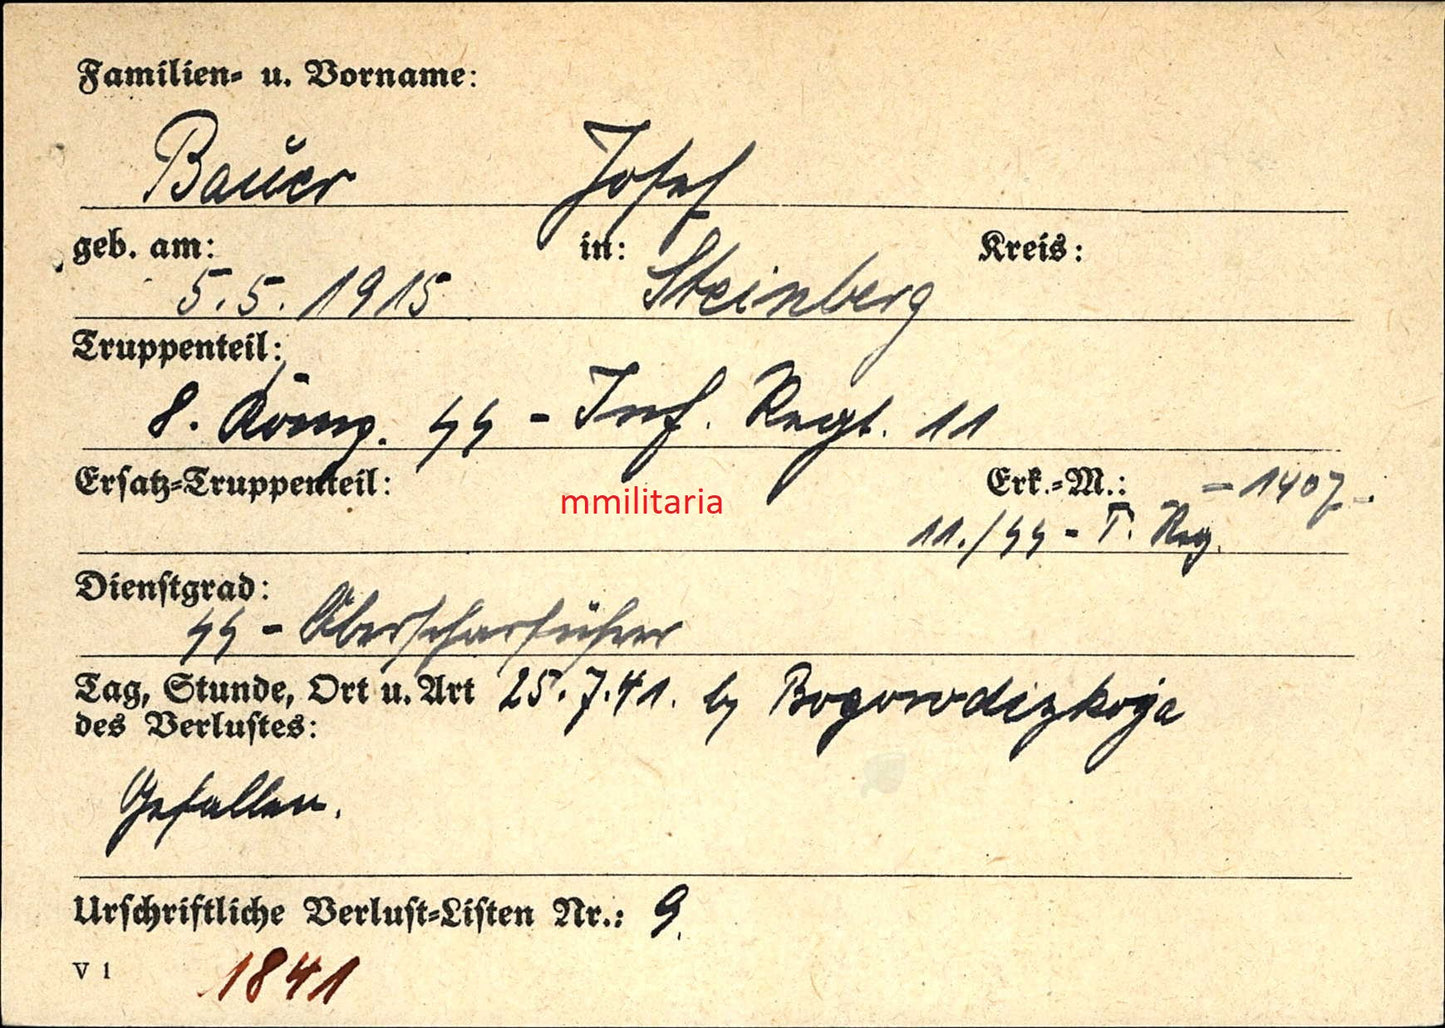 Familien- u. Vorname:
Bauer Josef
geb. am: in: Kreis:
5.5.1915 Steinberg
Truppenteil:
8. Komp. SS - Inf. Regt. 11
Ersatz-Truppenteil: Erk.-M.: - 1407 -.
11./SS - T. Reg.
mmilitaria
Dienstgrad:
SS - Oberscharführer
Tag, Stunde, Ort u. Art 25.7.41. by Bogorodizkoja
des Verlustes:
Gefallen.
Urschriftliche Verlust-Listen Nr.: 9.
V 1 1841